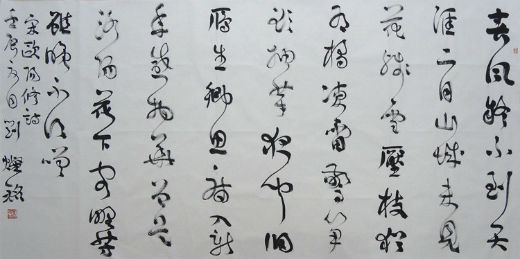 春風疑不到天
涯二月山城未見
花殘雪壓枝猶
有橘凍雷驚筍
欲抽芽夜聞歸
雁生鄉思病入新
年感物華曾是
洛陽花下客野芳
雖晚不須嗟
宋歐陽修詩
月劉燦銘